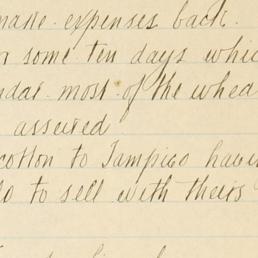 make expenses back.
r some ten days whic
ndar most of the whea
assured
cotton to Tampico have
to sell with theirs